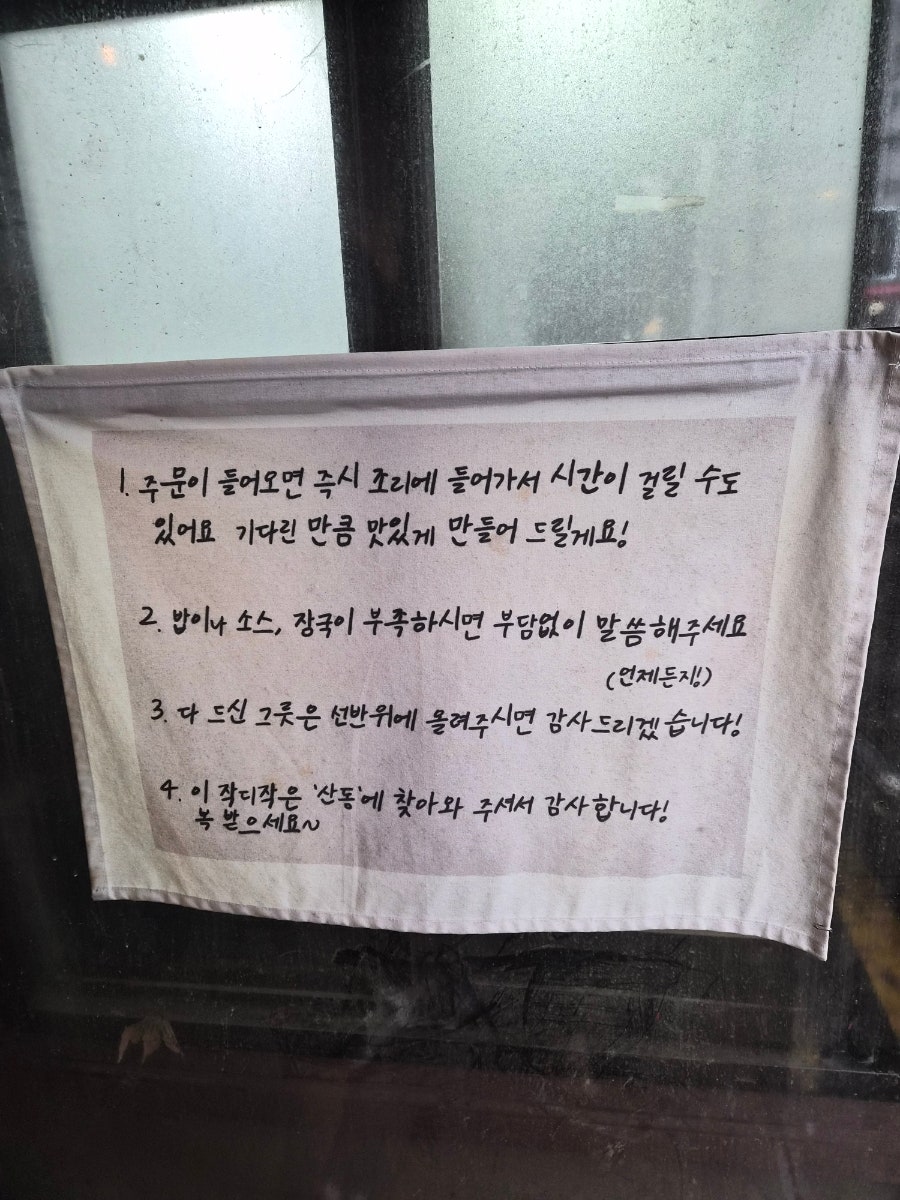 1. 주문이 들어오면 즉시 조리에 들어가서 시간이 걸릴 수도
있어요 기다린 만큼 맛있게 만들어 드릴게요!
2. 밥이나 소스, 장국이 부족하시면 부담없이 말씀해주세요
(언제든지!)
3. 다 드신 그릇은 선반위에 올려주시면 감사드리겠습니다!
4. 이 작디작은 '산동'에 찾아와 주셔서 감사합니다!
복 받으세요~